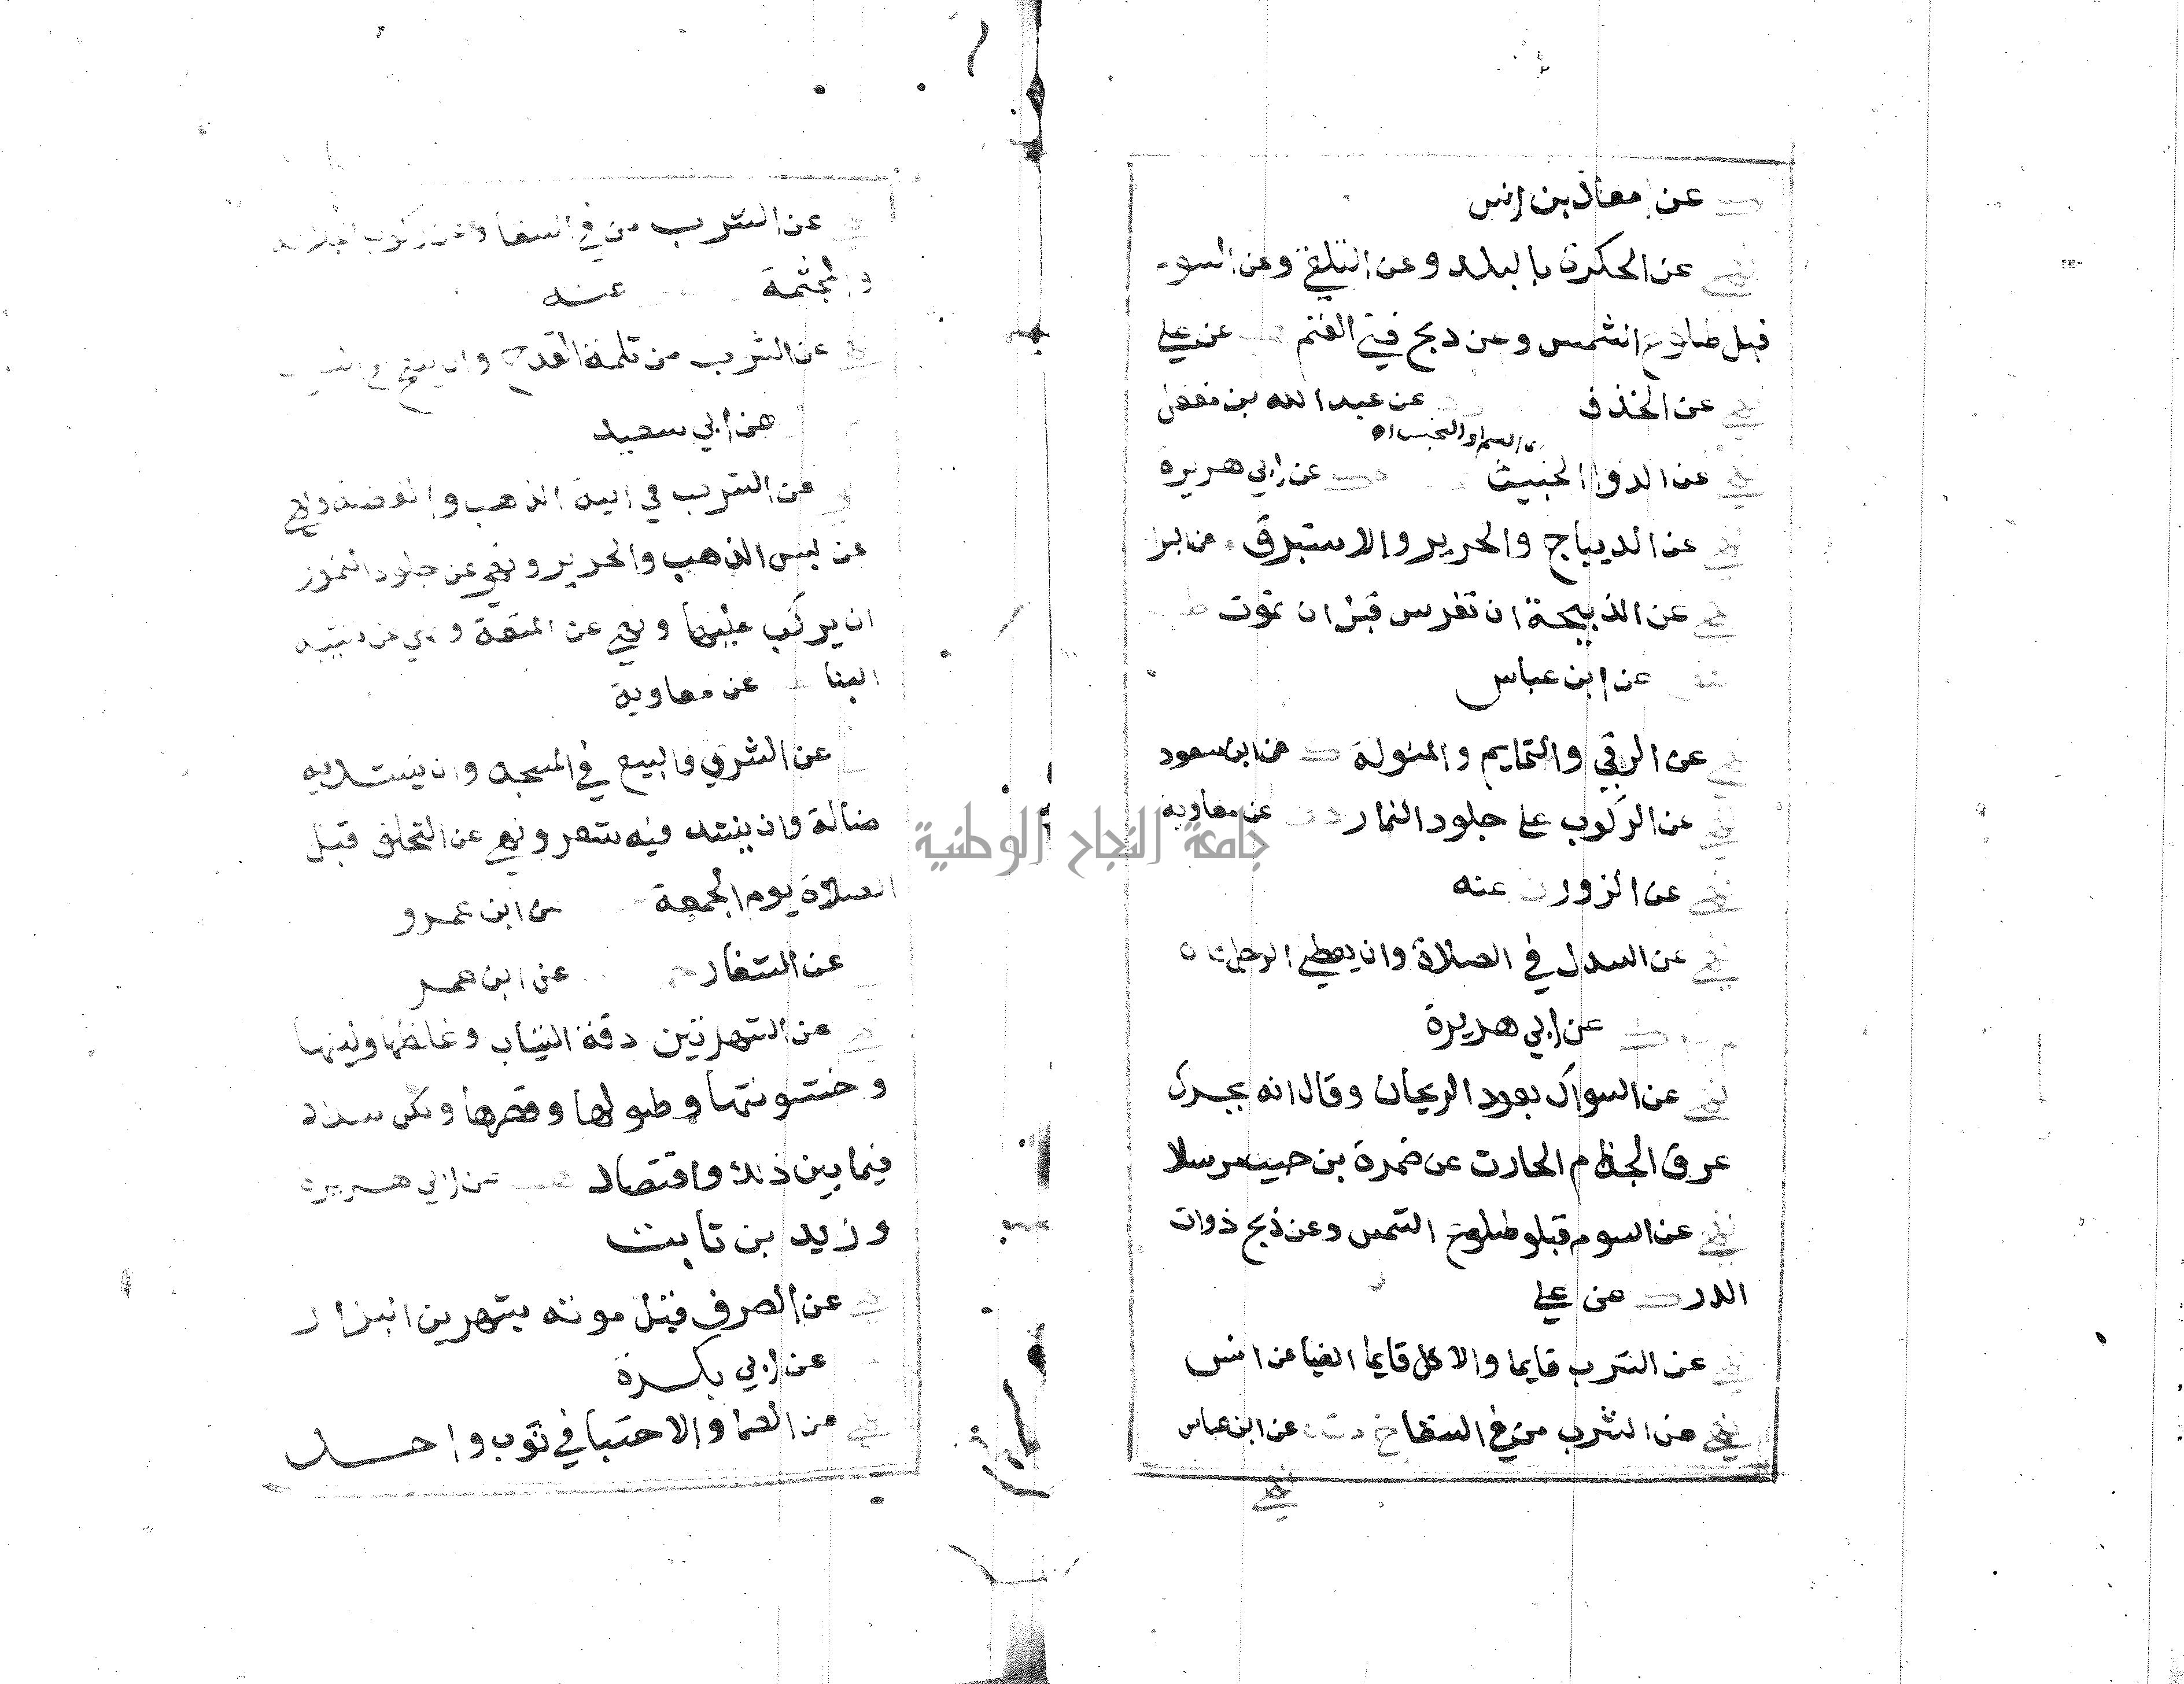 عن معاذ بن انس
نهي عن الحكرة بالبلد وعن التلقي وعن السو
قبل طلوع الشمس وعن ذبح قني الغنم هب عن علي
نهي عن الخذف عن عبد الله بن مغفل
السم او النجس اه
نهي عن الدوا الخبيث عن ابي هريرة
نهي عن الديباج والحرير والاستبرق عن البرا
نهي عن الذبيحة ان تفرس قبل ان تموت ط
عن ابن عباس
نهي عن الرقي والتمايم والتولة عن ابن سعود
نهي عن الركوب على جلود النمار عن معاوية
نهي عن الزور ن عنه
نهي عن السدل في الصلاة وان يغطي الرجل فاه
عن ابي هريرة
نهي عن السواك بعود الريحان وقال انه يحرك
عرق الجذام الحارث عن ضمرة بن حبيب مرسلا
نهي عن السوم قبل طلوع الشمس وعن ذبح ذوات
الدر عن علي
نهي عن الشرب قايما والاكل قايما الضيا عن انس
نهي عن الشرب من في السقا خ عن ابن عباس
نهي
نهي عن الشرب من في السقا وعن ركوب الجلالة
والمجثمة عنه
نهي عن الشرب من ثلمة القدح وان ينفخ في
عن ابي سعيد
عن الشرب في انية الذهب والفضة ونهي
عن لبس الذهب والحرير ونهي عن جلود النمور
ان يركب عليها ونهي عن المتعة ونهي عن تشييد
البنا عن معاوية
عن الشري والبيع في المسجد وان ينشد فيه
ضالة وان ينشد فيه شعر ونهي عن التحلق قبل
الصلاة يوم الجمعة عن ابن عمرو
عن الشغار عن ابن عمر
نهي عن الشهرتين دقة الثياب وغلظها ولينها
وخشونتها وطولها وقصرها ولكن سداد
فيما بين ذلك واقتصاد هب عن ابي هريرة
وزيد بن ثابت
نهي عن الصرف قبل موته بشهرين البزار
عن ابي بكرة
نهي عن الصما والاحتبا في ثوب واحد
جامعة النجاح الوطنية